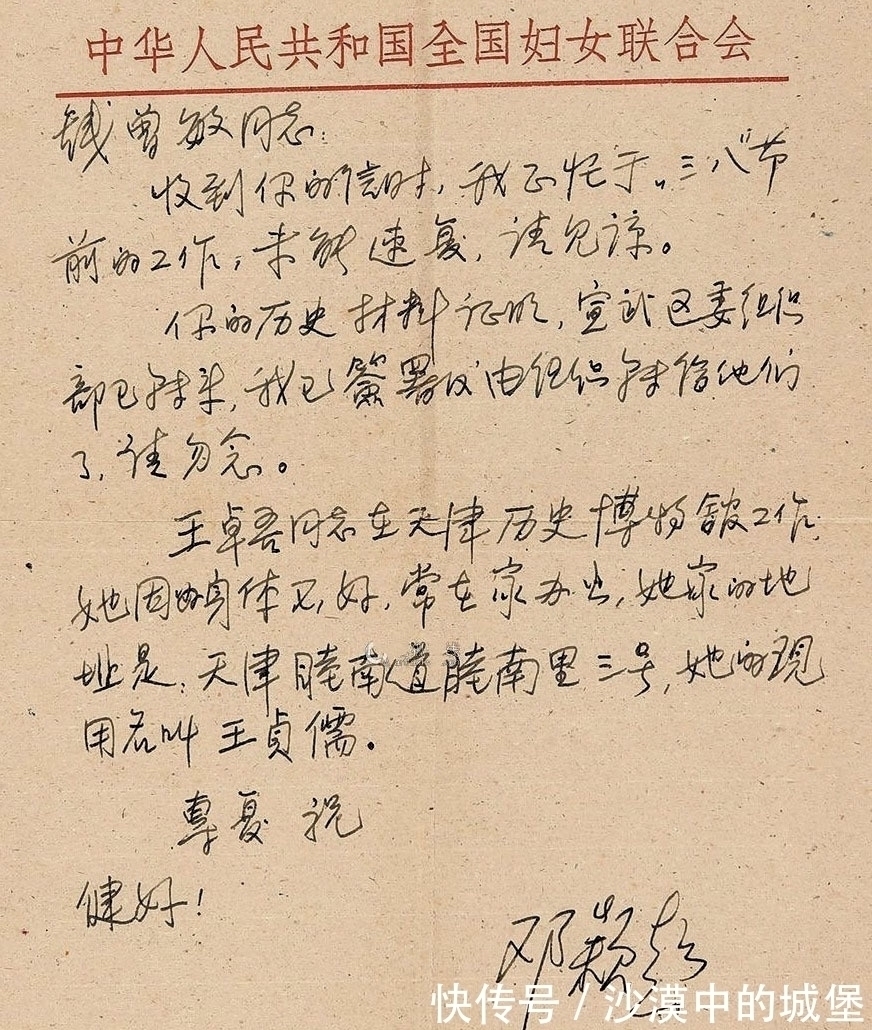 中华人民共和国全国妇女联合会
钱曾敏同志:
收到你的信时,我正忙于"三八"节
前的工作,未能速复,请见谅。
你的历史材料证明,宣武区委组织
部已转来,我已簽署仅由组织转给他们
了,请勿念。
王卓吾同志在天津历史博物館工作,
她因为身体不好,常在家办公,她家的地
址是:天津睦南道睦南里三号,她的现
用名叫王贞儒。
專复 祝
健好!
邓颖超
快传号 / 沙漠中的城堡